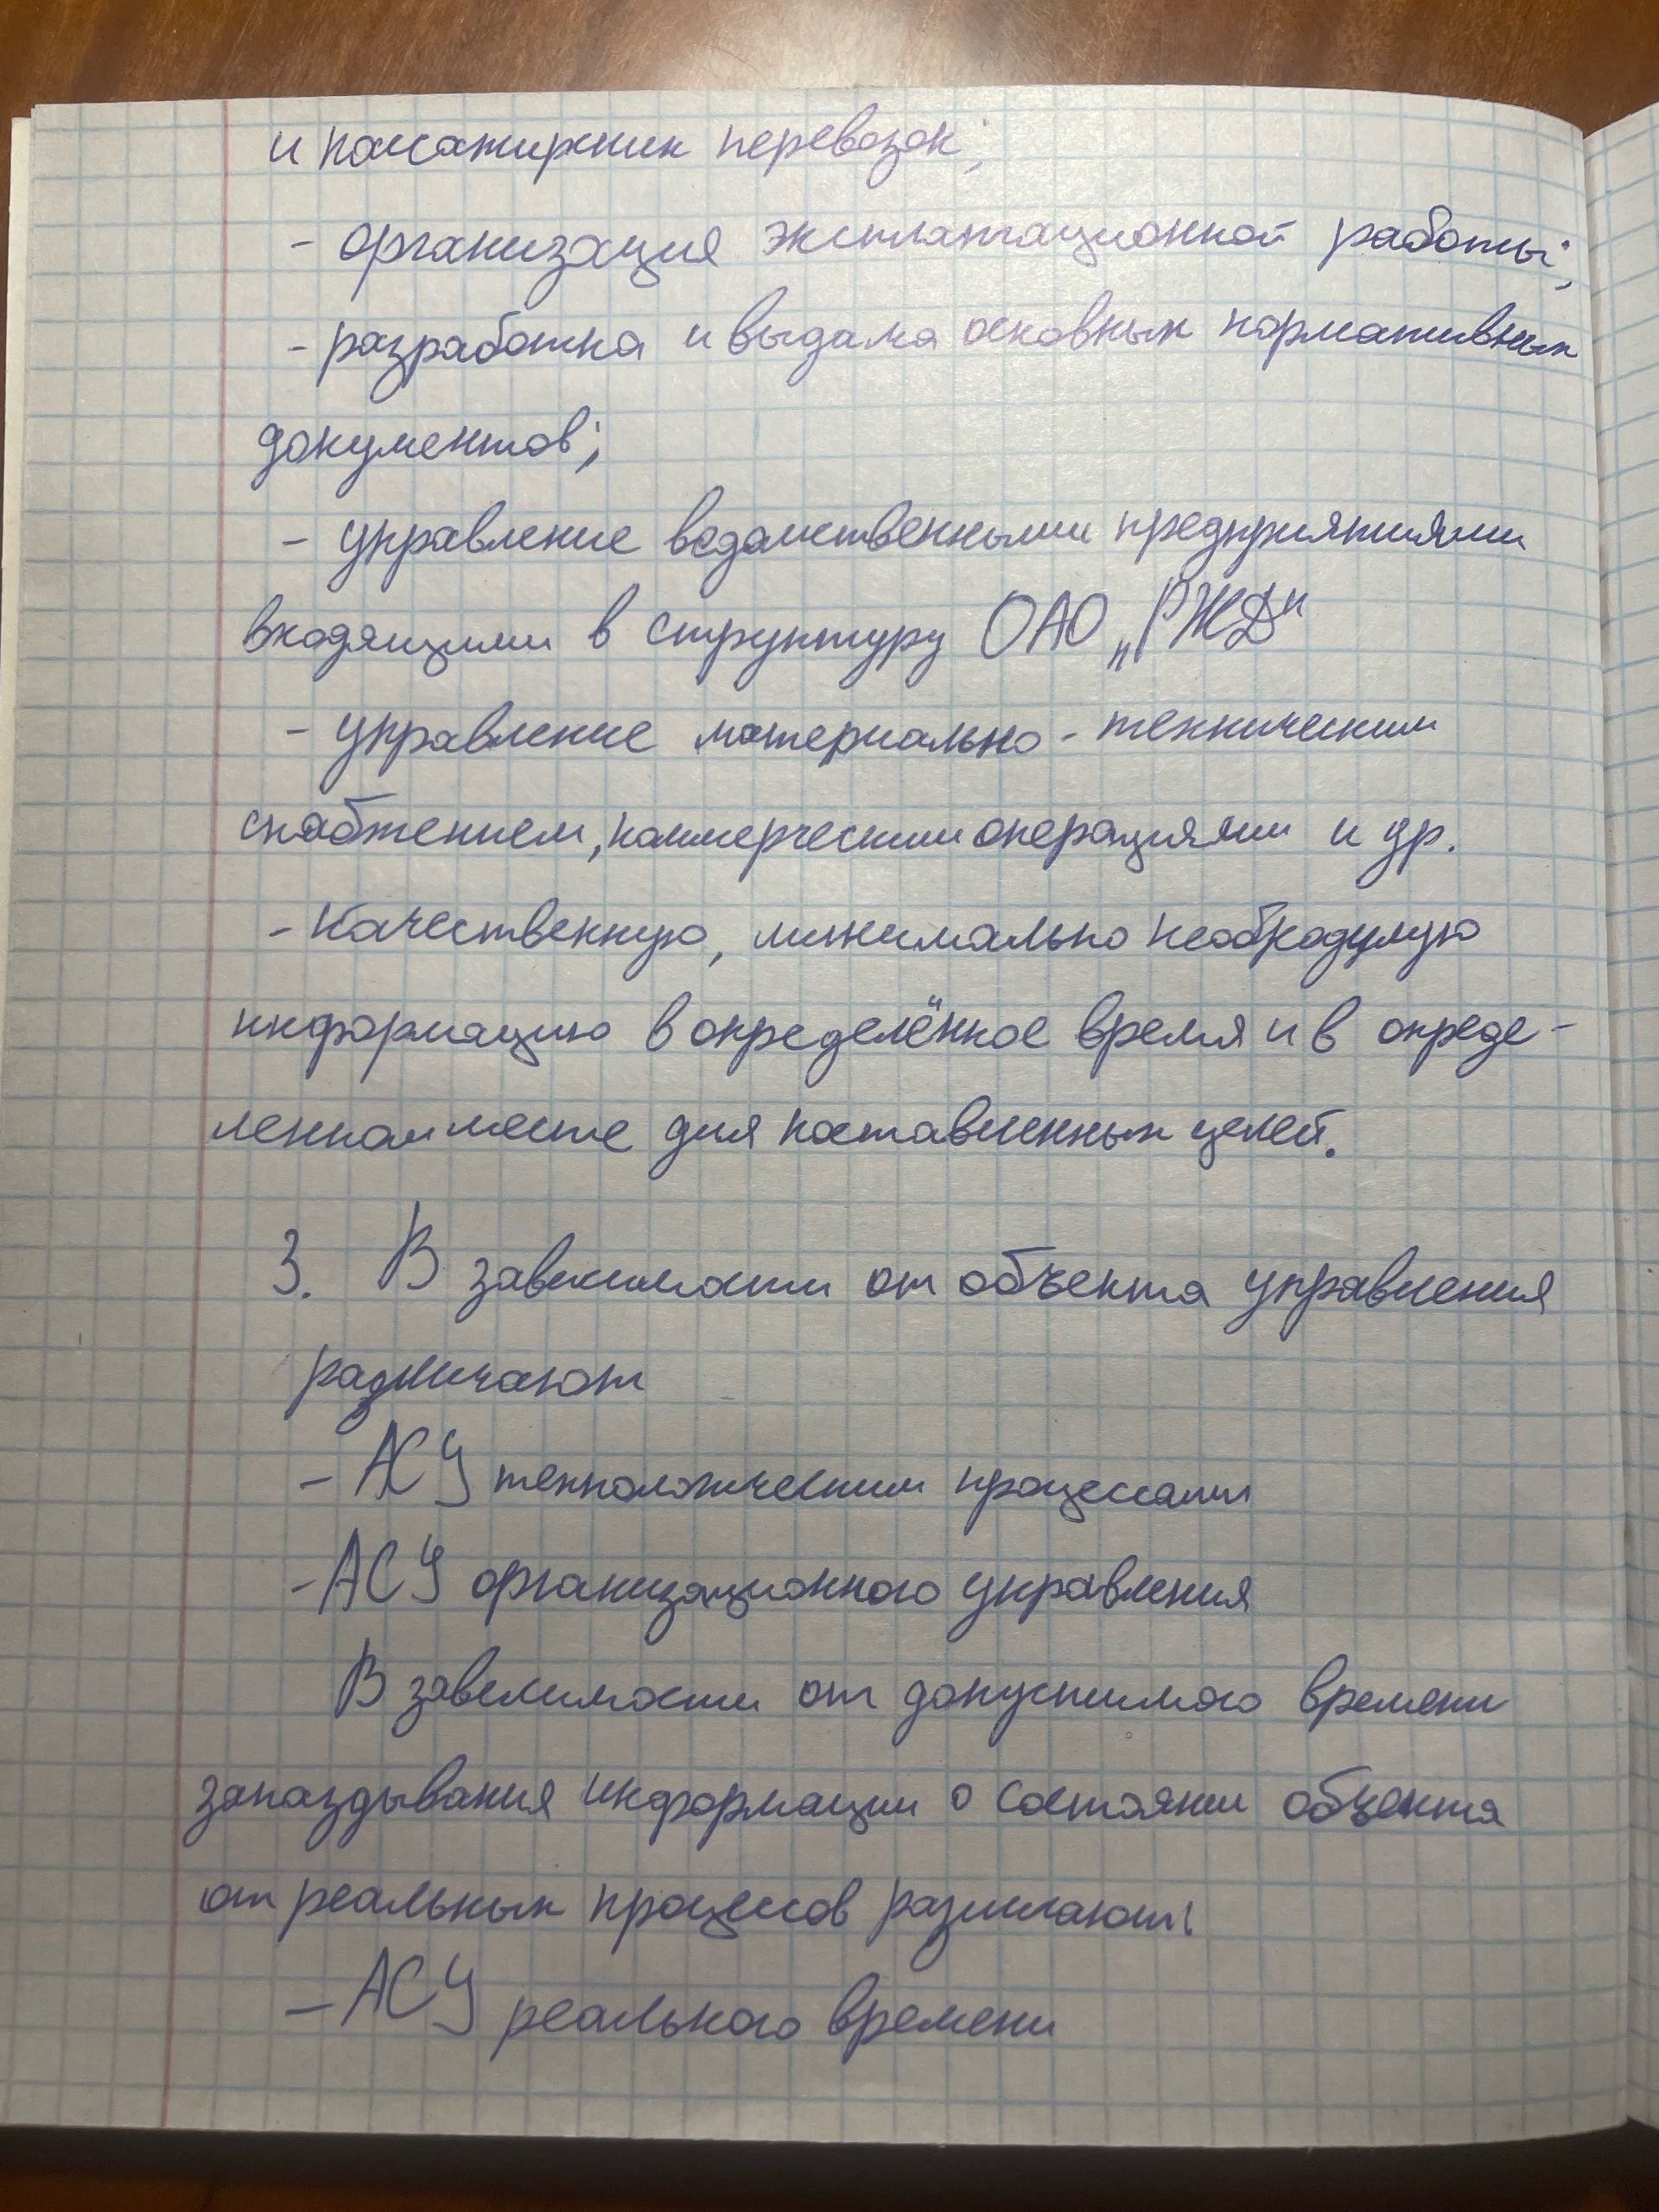 и пассажирких перевозок;
- организация эксплатационной работы;
- разработка и выдача основных нормативных
документов;
- управление ведомственными предприятиями
входящими в структуру ОАО „РЖД“
- управление материально-техническим
снабжением, коммерческими операциями и др.
- качественную, минимально необходимую
информацию в определённое время и в опреде-
ленном месте для поставленных целей.
3. В завесимости от объекта управления
различают
- АСУ технологическими процессами
- АСУ организационного управления
В завесимости от допустимого времени
запаздывания информации о состоянии объекта
от реальных процессов различают:
- АСУ реального времени